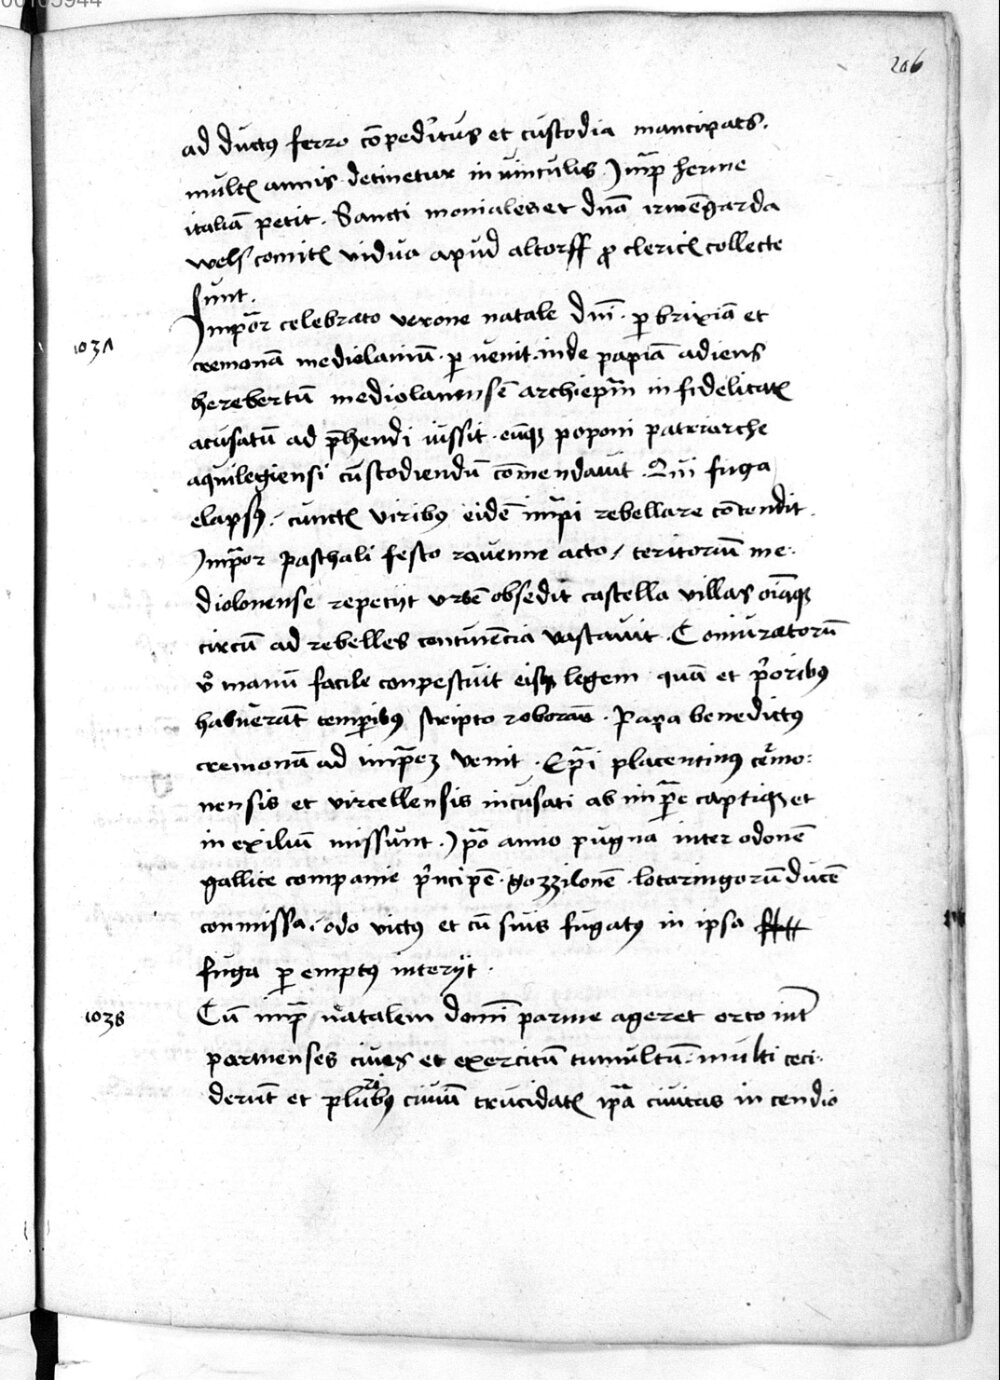 206
ad ductus ferro cōpeditus et custodia mancipats.
multꝭ annis detinetur in vinculis Imꝑ herine
italiā petit. Sancti moniales et dnā irmēgarda
welf comitꝭ vidua apud altorff ꝓ clericꝭ collecte
sunt.
1037
Imperōr celebrato verone natale dnī. ꝑ brixiā et
cremonā mediolanum. ꝑ venit. inde papiā adiens
herebertū mediolanensē archiepm̄ in fidelitatꝭ
acusatū ad p̄hendi iussit. eūqꝫ poponi patriarche
aquilegiensi cūstodiendū com̄endauit. Qui fuga
elapsꝰ. cunctꝭ viribus eidē imp̄i rebellare cōtendit.
Imp̄or paschali festo rauenne acto / teritorium me-
diolonense repetijt vrbē obsedit castella villas oīaqꝫ
circū ad rebelles continēcia vastauit. Coniuratorū
v̊ manū facile conpescuit eisqꝫ legem quā et p̄oribus
habuerāt temꝑibus scripto roborās. Papa benedictus
cremonā ad imp̄eꝫ venit. Ep̄i placentinus cēmo-
nensis et vircellensis incusati ab imp̄e captiqꝫ et
in exilium missunt. Ip̄o anno pugna inter odonē
gallice companie p̄ncipē. gozzilonē. lotaringorū ducē
conmissa. odo victus et cū suis fugatus in ipsa
fuga ꝑ emptus interijt.
1038
Cū imp̄ natalem domī parme ageret orto int̄
parmenses ciues et exercitū tumultū. multi ceci-
derūt et pluribus ciuiū trucidatꝭ ip̄a ciuitas in cendio